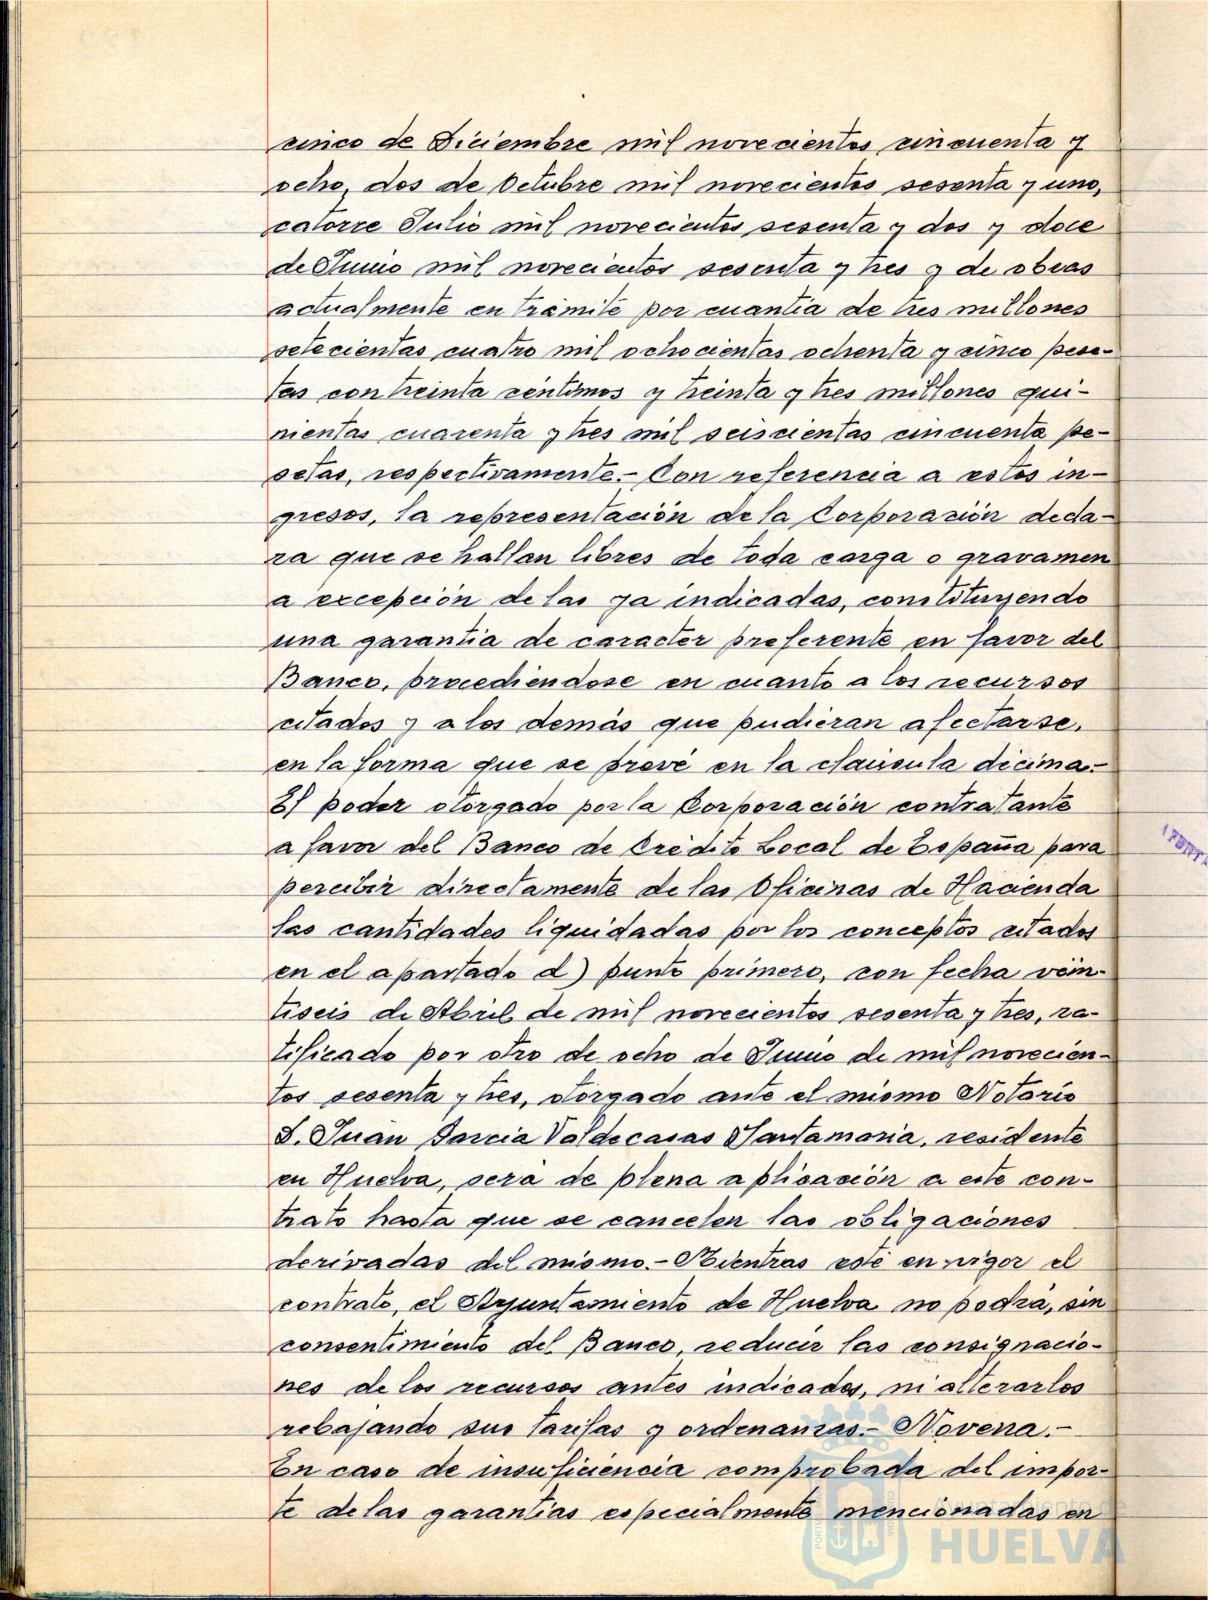 cinco de Diciembre mil novecientos cincuenta y
ocho, dos de Octubre mil novecientos sesenta y uno,
catorce Julio mil novecientos sesenta y dos y doce
de Junio mil novecientos sesenta y tres y de obras
actualmente en trámite por cuantía de tres millones
setecientas cuatro mil ochocientas ochenta y cinco pese-
tas con treinta céntimos y treinta y tres millones qui-
nientas cuarenta y tres mil seiscientas cincuenta pe-
setas, respectivamente.- Con referencia a estos in-
gresos, la representación de la Corporación decla-
ra que se hallan libres de toda carga o gravamen
a excepción de las ya indicadas, constituyendo
una garantía de caracter preferente en favor del
Banco, procediéndose en cuanto a los recursos
citados y a los demás que pudieran afectarse,
en la forma que se prevé en la claúsula décima.-
El poder otorgado por la Corporación contratante
a favor del Banco de Crédito Local de España para
percibir directamente de las Oficinas de Hacienda
las cantidades liquidadas por los conceptos citados
en el apartado d) punto primero, con fecha vein-
tiseis de Abril de mil novecientos sesenta y tres, ra-
tificado por otro de ocho de Junio de mil novecien-
tos sesenta y tres, otorgado ante el mismo Notario
D. Juan Garcia Valdecasas Santamaria, residente
en Huelva, será de plena aplicación a este con-
trato hasta que se cancelen las obligaciones
derivadas del mismo.- Mientras esté en vigor el
contrato, el Ayuntamiento de Huelva no podrá, sin
consentimiento del Banco, reducir las consignacio-
nes de los recursos antes indicados, ni alterarlos
rebajando sus tarifas y ordenanzas.- Novena.-
En caso de insuficiencia comprobada del impor-
te de las garantías especialmente mencionadas en
Ayuntamiento de
HUELVA